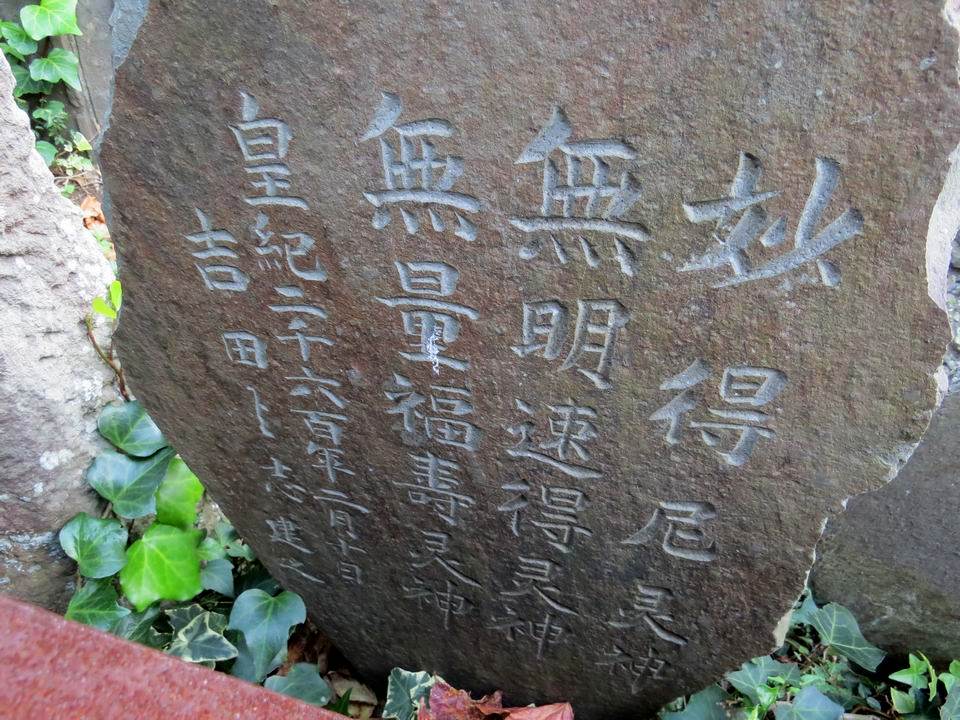 妙得尼灵神
無明速得灵神
無量福壽灵神
皇紀二千六百年二月十日
吉田卜志建之